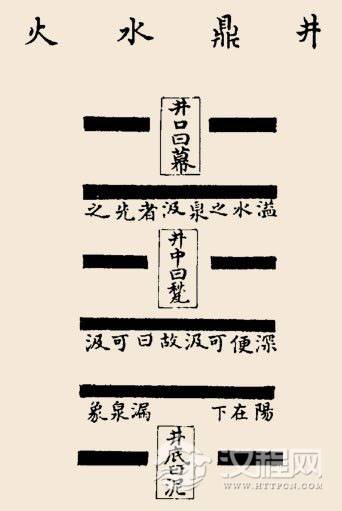 井鼎水火
井口曰幕
溢水之泉汲者先之
井中曰甃
深便可汲故曰可汲
陽在下漏泉象
井底曰泥
汉程网
WWW.HTTPCN.COM